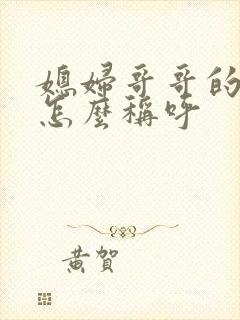 媳婦哥哥的
怎麼稱呼
黃賀